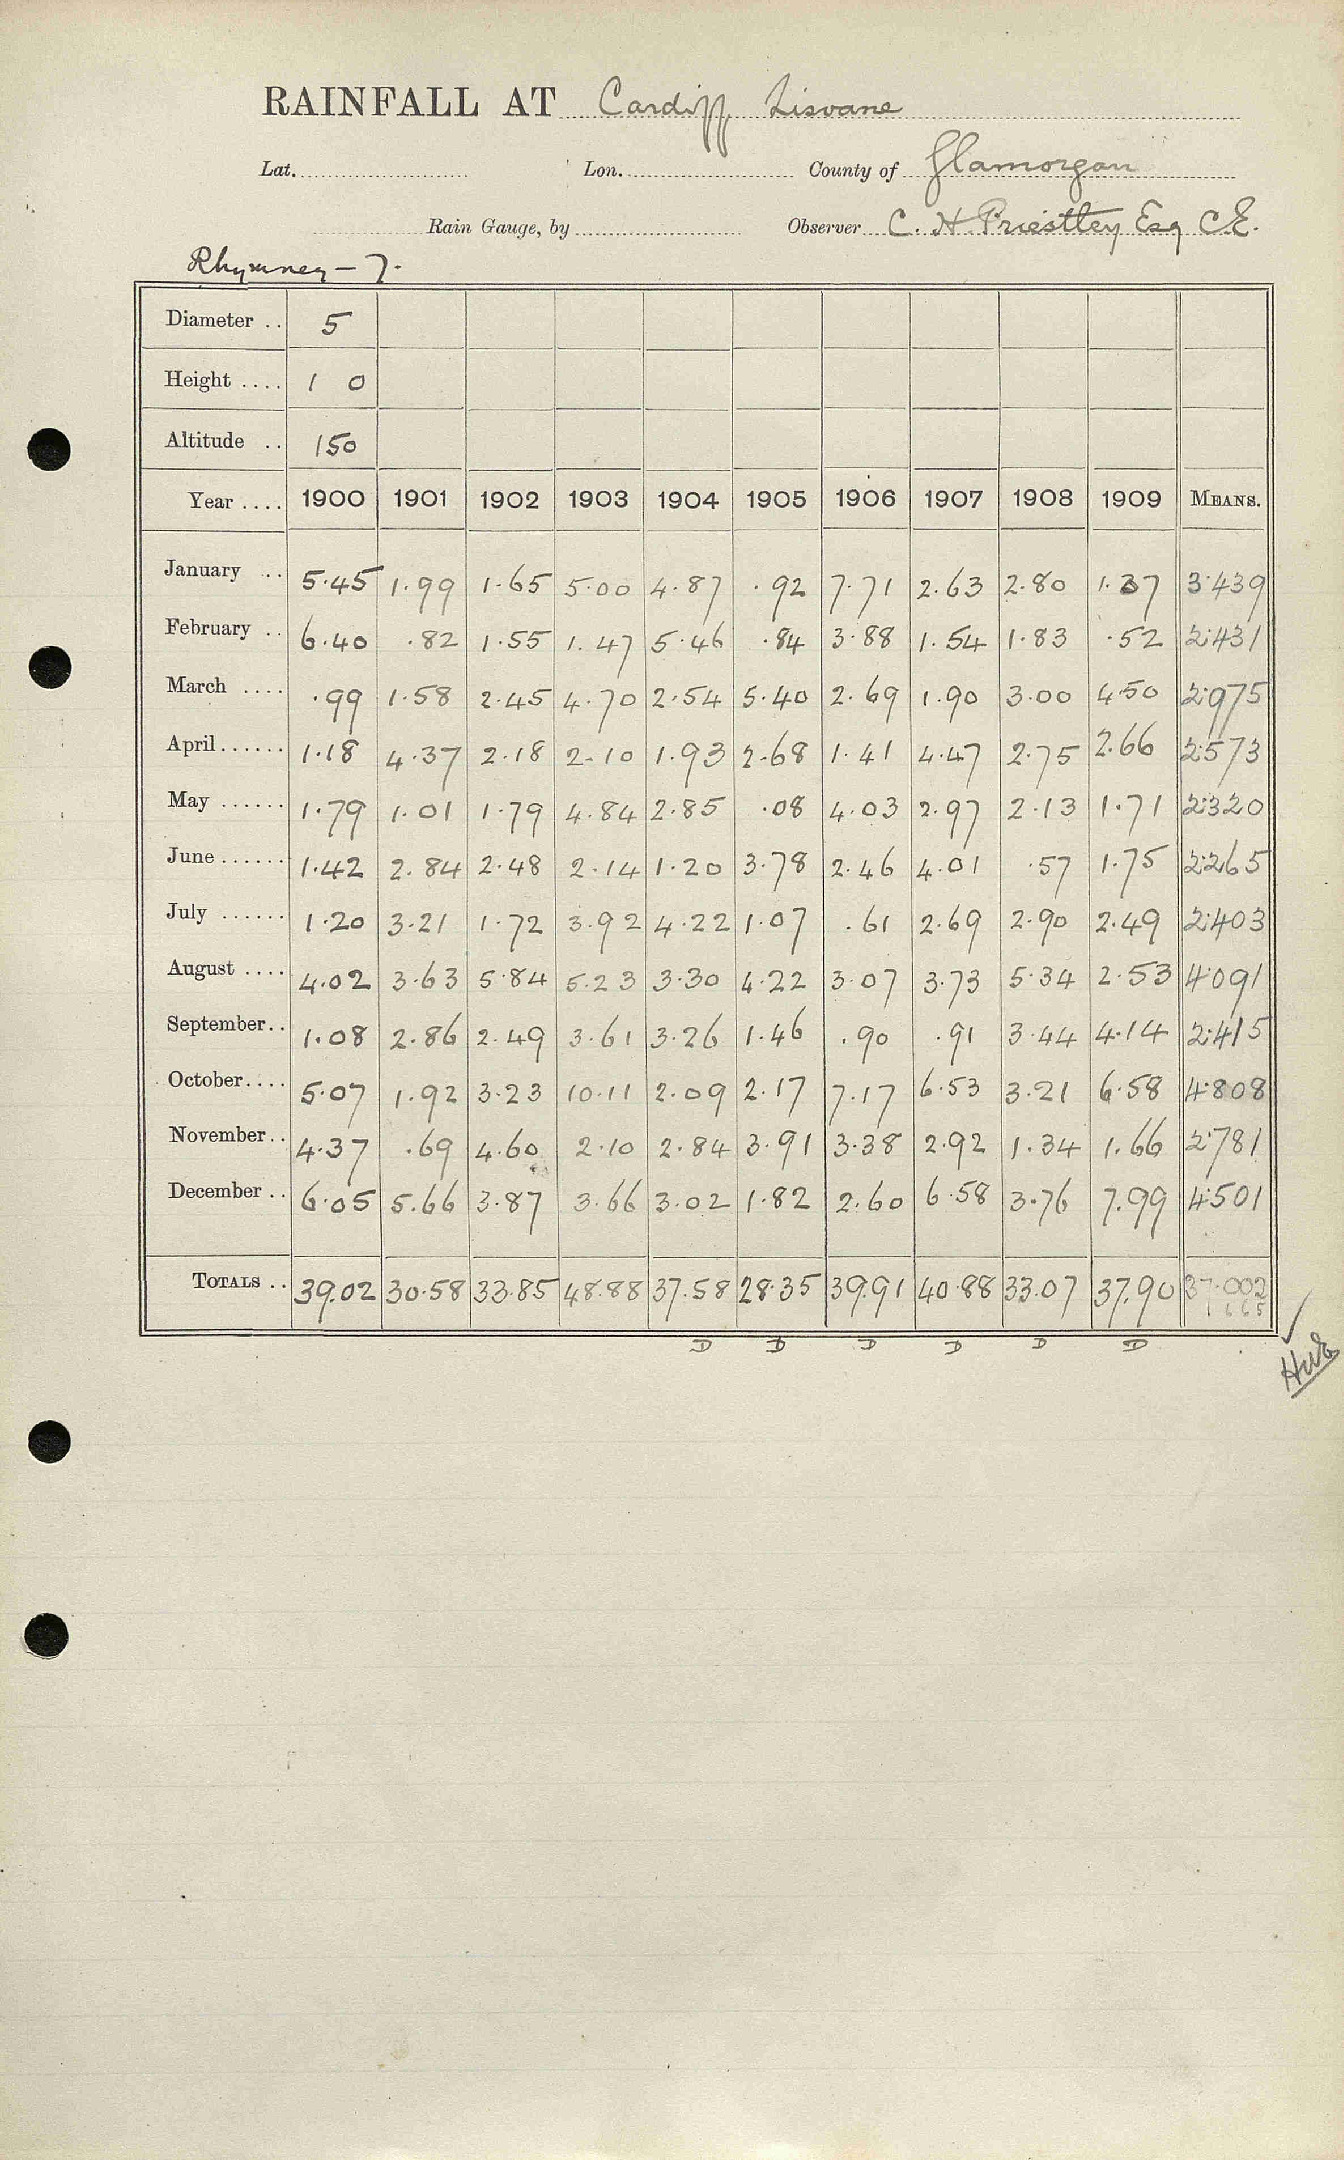 RAINFALL AT Cardiff Lisvane
Lat. Lon. County of Glamorgan
Rain Gauge, by Observer C. H. Priestley Esq C.E.
Rhymney - 7.
Diameter .. 5
Height .... 1 0
Altitude .. 150
Year .... 1900 1901 1902 1903 1904 1905 1906 1907 1908 1909 MEANS.
January .. 5.45 1.99 1.65 5.00 4.87 .92 7.71 2.63 2.80 1.37 3.439
February .. 6.40 .82 1.55 1.47 5.46 .84 3.88 1.54 1.83 .52 2.431
March .... .99 1.58 2.45 4.70 2.54 5.40 2.69 1.90 3.00 4.50 2.975
April...... 1.18 4.37 2.18 2.10 1.93 2.68 1.41 4.47 2.75 2.66 2.573
May ...... 1.79 1.01 1.79 4.84 2.85 .08 4.03 2.97 2.13 1.71 2.320
June ...... 1.42 2.84 2.48 2.14 1.20 3.78 2.46 4.01 .57 1.75 2.265
July ...... 1.20 3.21 1.72 3.92 4.22 1.07 .61 2.69 2.90 2.49 2.403
August .... 4.02 3.63 5.84 5.23 3.30 4.22 3.07 3.73 5.34 2.53 4.091
September.. 1.08 2.86 2.49 3.61 3.26 1.46 .90 .91 3.44 4.14 2.415
October.... 5.07 1.92 3.23 10.11 2.09 2.17 7.17 6.53 3.21 6.58 4.808
November.. 4.37 .69 4.60 2.10 2.84 3.91 3.38 2.92 1.34 1.66 2.781
December .. 6.05 5.66 3.87 3.66 3.02 1.82 2.60 6.58 3.76 7.99 4.501
TOTALS .. 39.02 30.58 33.85 48.88 37.58 28.35 39.91 40.88 33.07 37.90 37.002
D D D D D D